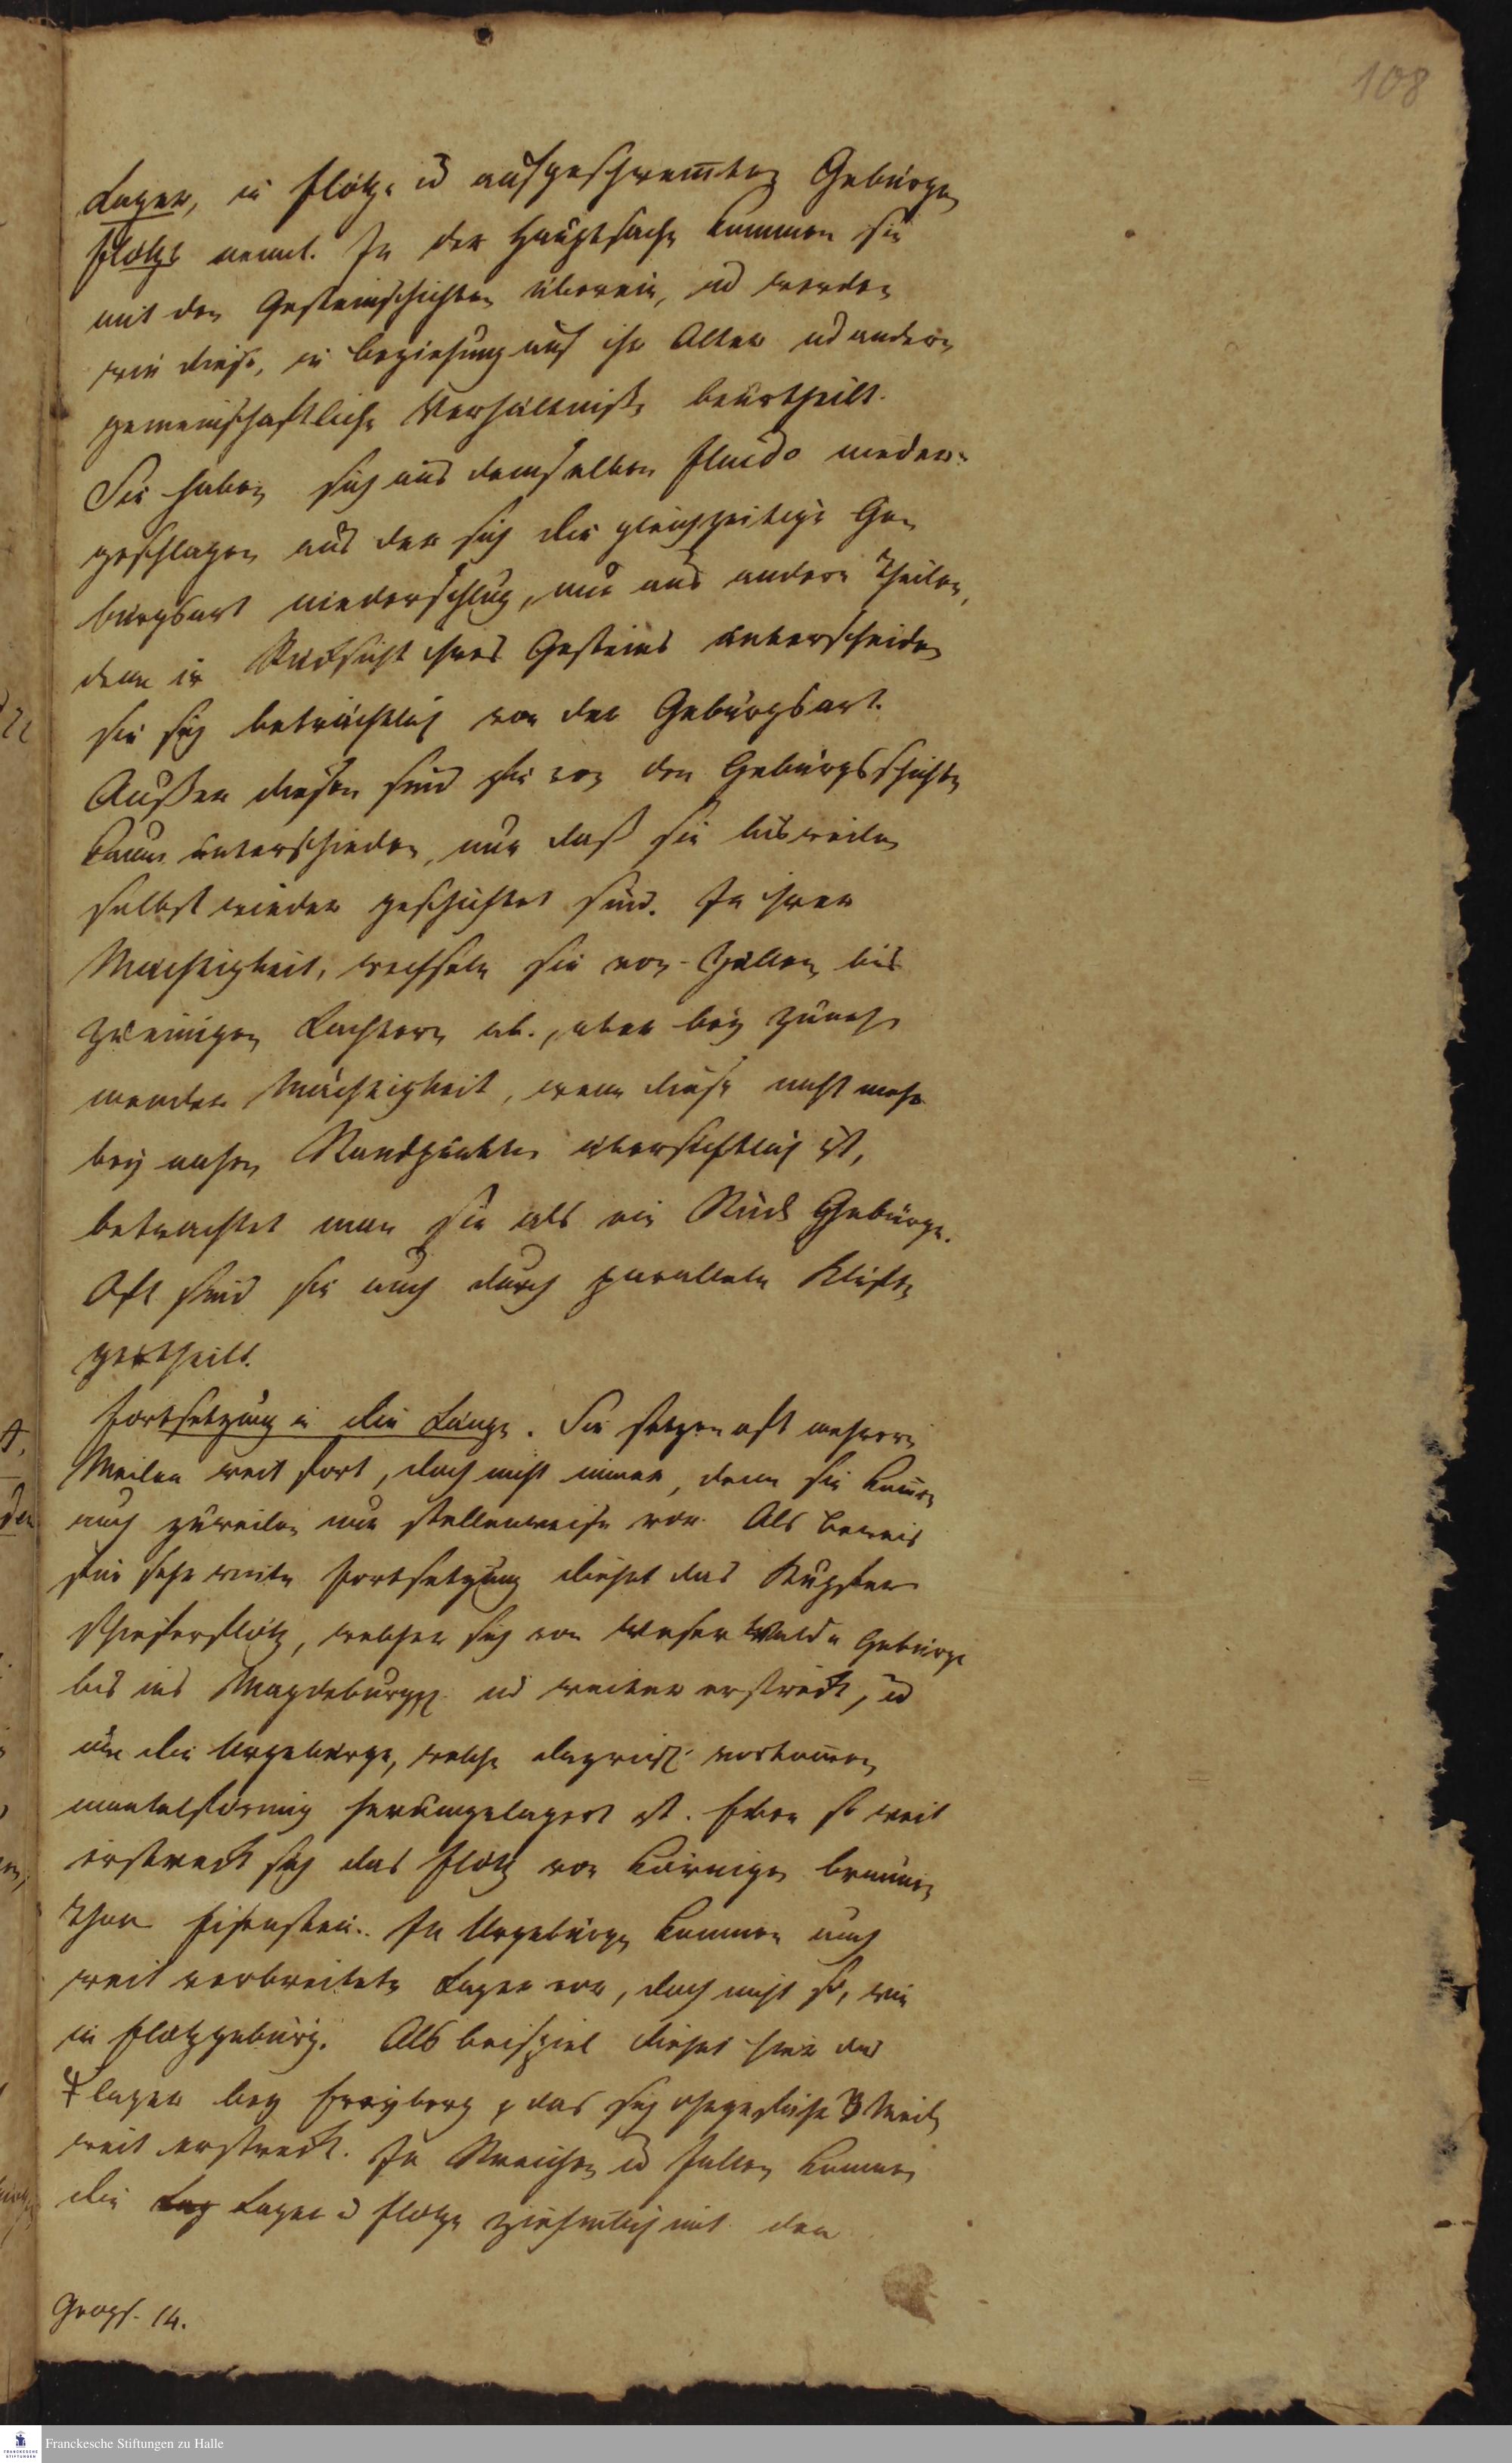 108
Lager, in Flötz u aufgeschwem̅ten Gebürgen
Flötze nennt. In der Hauptsache kommen sie
mit den Gesteinschichten überein, ud werden
wie diese, in Beziehung auf ihr Alter ud andere
gemeinschaftliche Verhältniße beurtheilt.
Sie haben sich aus demselben Fluido nieder-
geschlagen aus der sich die gleichzeitige Ge-
bürgsart niederschlug, nur aus andern Theilen,
denn in Rücksicht ihres Gesteins unterscheiden
sie sich beträchtlich von der Gebürgsart.
Außer diesen sind sie von den Gebürgsschichten
kaum unterschieden, nur daß sie bisweilen
selbst wieder geschichtet sind. In ihrer
Mächtigkeit, wechseln sie von Zollen bis
zu einigen Lachtern ab., aber bey zuneh-
mender Mächtigkeit, wenn diese nicht mehr
bey nahen Standpunkten übersichtlich ist,
betrachtet man sie als ein Stück Gebürge.
Oft sind sie auch durch parallele Klüfte
zertheilt.
Fortsetzung in die Länge. Sie setzen oft mehrere
Meilen weit fort, doch nicht immer, denn sie kom̅en
auch zuweilen nur stellenweise vor. Als Beweis
für sehr weite Fortsetzung dienet das Kupfer
schieferflötz, welches sich vom Gebürge
bis ins Magdeburg. ud weiter erstreckt, ud
um die Urgebürge, welche dazwisch. vorkom̅en,
mantelförmig herumgelagert ist. Eben so weit
erstreckt sich das Flötz von körnigen braunen
Thon Eisenstein. In Urgebürgen kommen auch
weit verbreitete Lager vor, doch nicht so, wie
in Flötzgebürg. Als Beispiel dienet hier das
lager bey Freyberg, das sich ohngefähr 3 Meilen
weit erstreckt. In Streichen u Fallen kommen
die Lag Lager u Flötze ziehmlich mit den
Geogs. 14.
Franckesche Stiftungen zu Halle